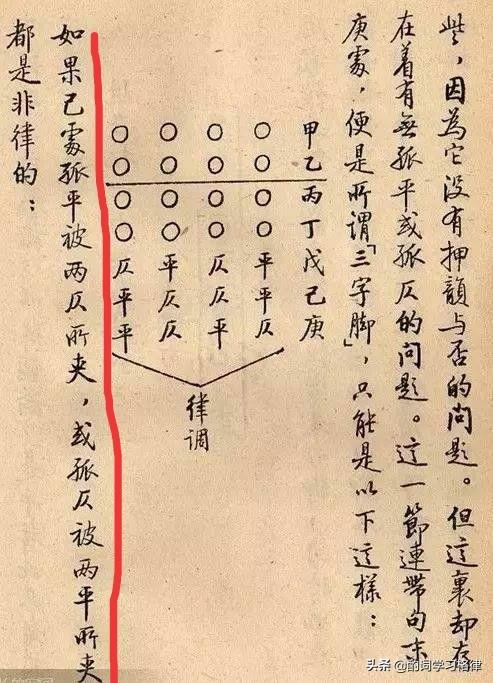 些，因為它没有押韻与否的问题。但這裏却存
在着有無孤平或孤仄的问题。這一節連帶句末
庚處，便是所谓「三字脚」，只能是以下這樣：
甲乙丙丁戊己庚
○○○○平平仄
○○○○仄仄平
○○○○平仄仄
○○○○仄平平
律调
如果己處孤平被两仄所夹，或孤仄被两平所夹
都是非律的：
头条 @酌词学习格律